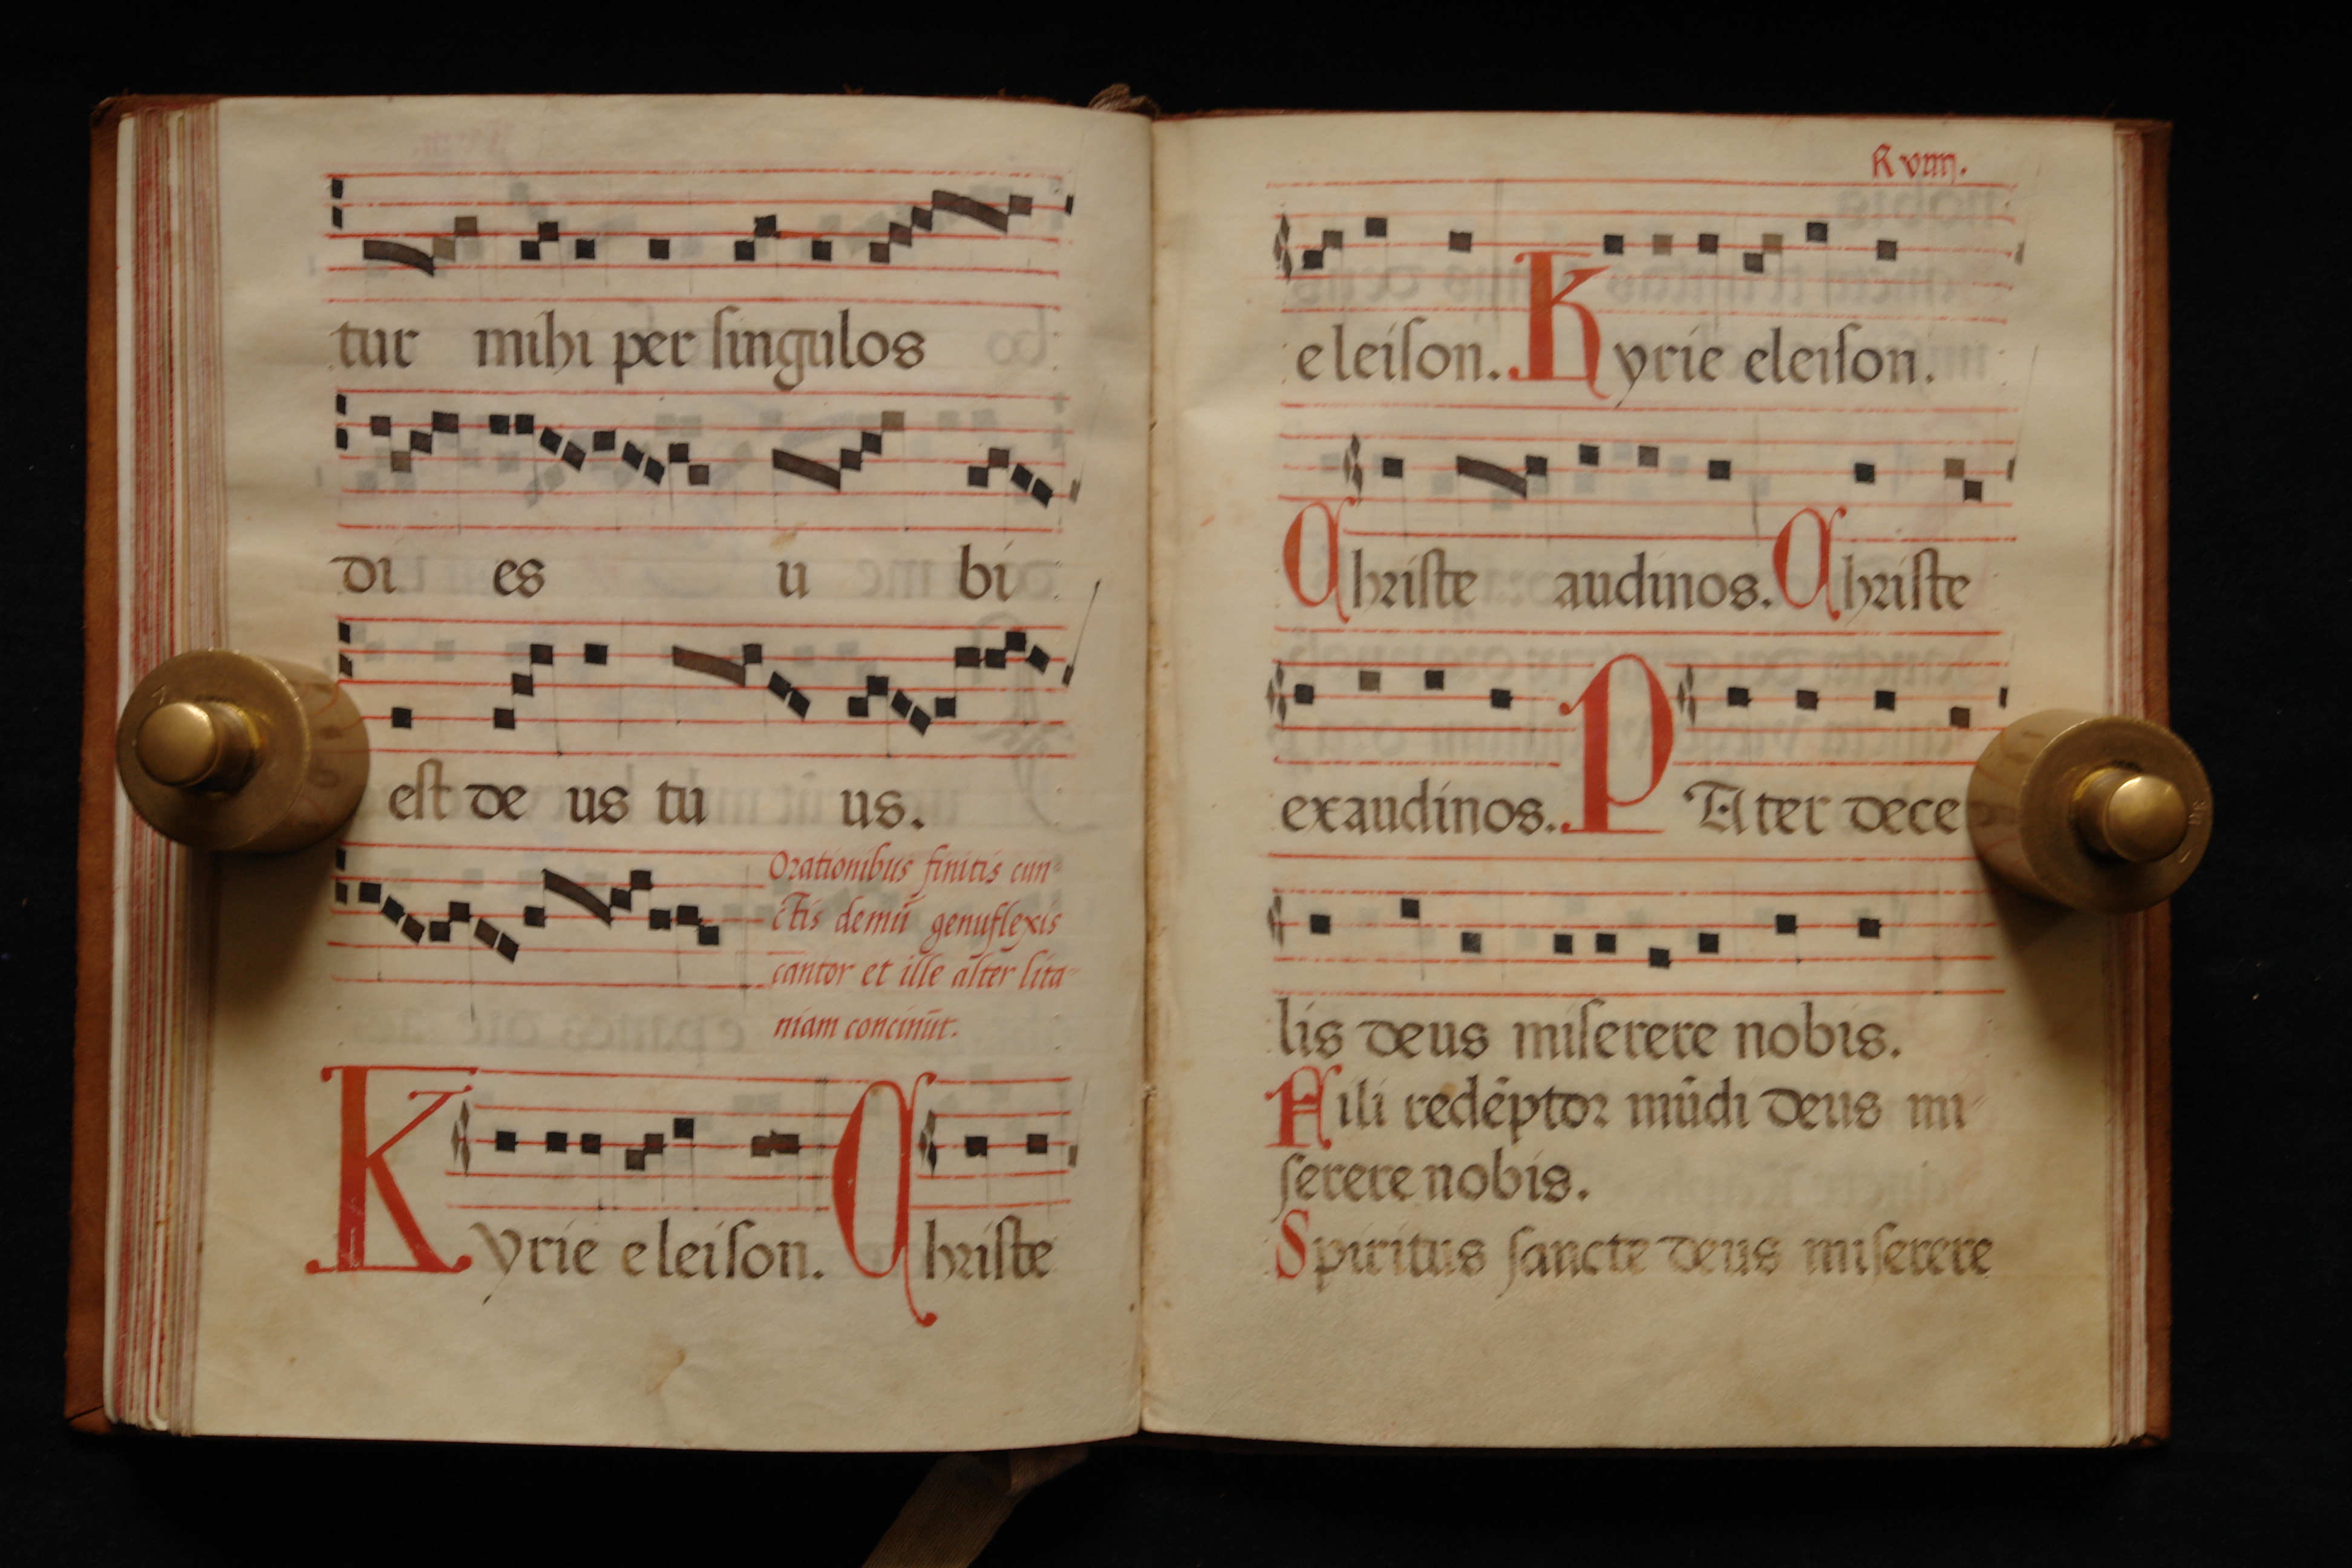 tur mihi per ſingulos
di es u bi
eſt de us tu us.
Orationibus finitis cun
ctis demū genuflexis
cantor et ille alter lita-
niam concinūt.
Kyrie eleiſon. Chriſte
eleiſon. Kyrie eleiſon.
Chriſte audinos. Chriſte
exaudinos. PAter dece
lis deus miſerere nobis.
Fili redēptor mūdi deus mi-
ſerere nobis.
Spiritus ſancte deus miſerere